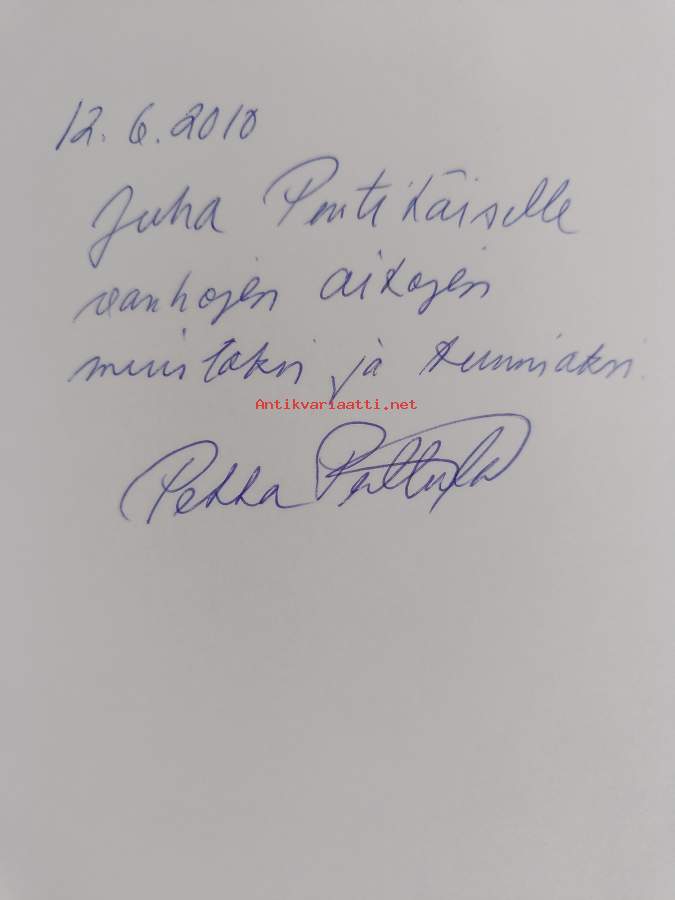 12.6.2010
Juha Pentikäiselle
vanhojen aikojen
muistoksi ja kunniaksi.
Antikvariaatti.net
Pekka